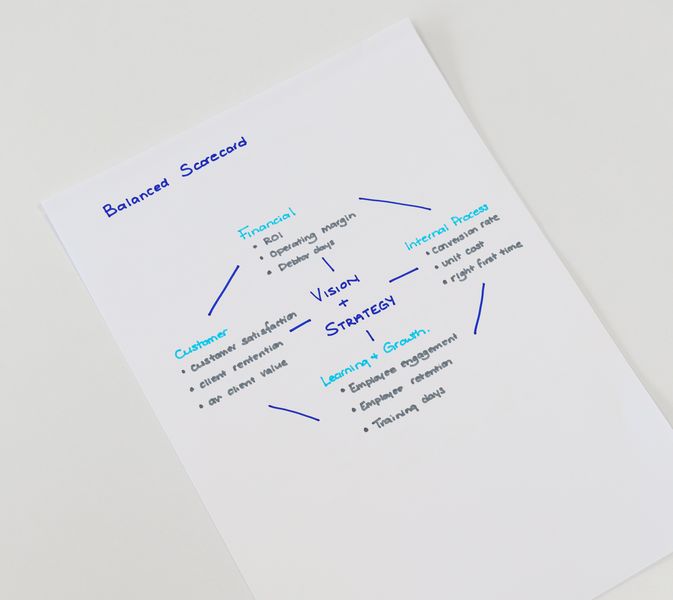 Balanced Scorecard
Financial
• ROI
• Operating margin
• Debtor days
Internal Process
• conversion rate
• unit cost
• right first time
VISION
+
STRATEGY
Customer
• customer satisfaction
• client rentention
• av client value
Learning + Growth.
• Employee engagement
• Employee retention
• Training days